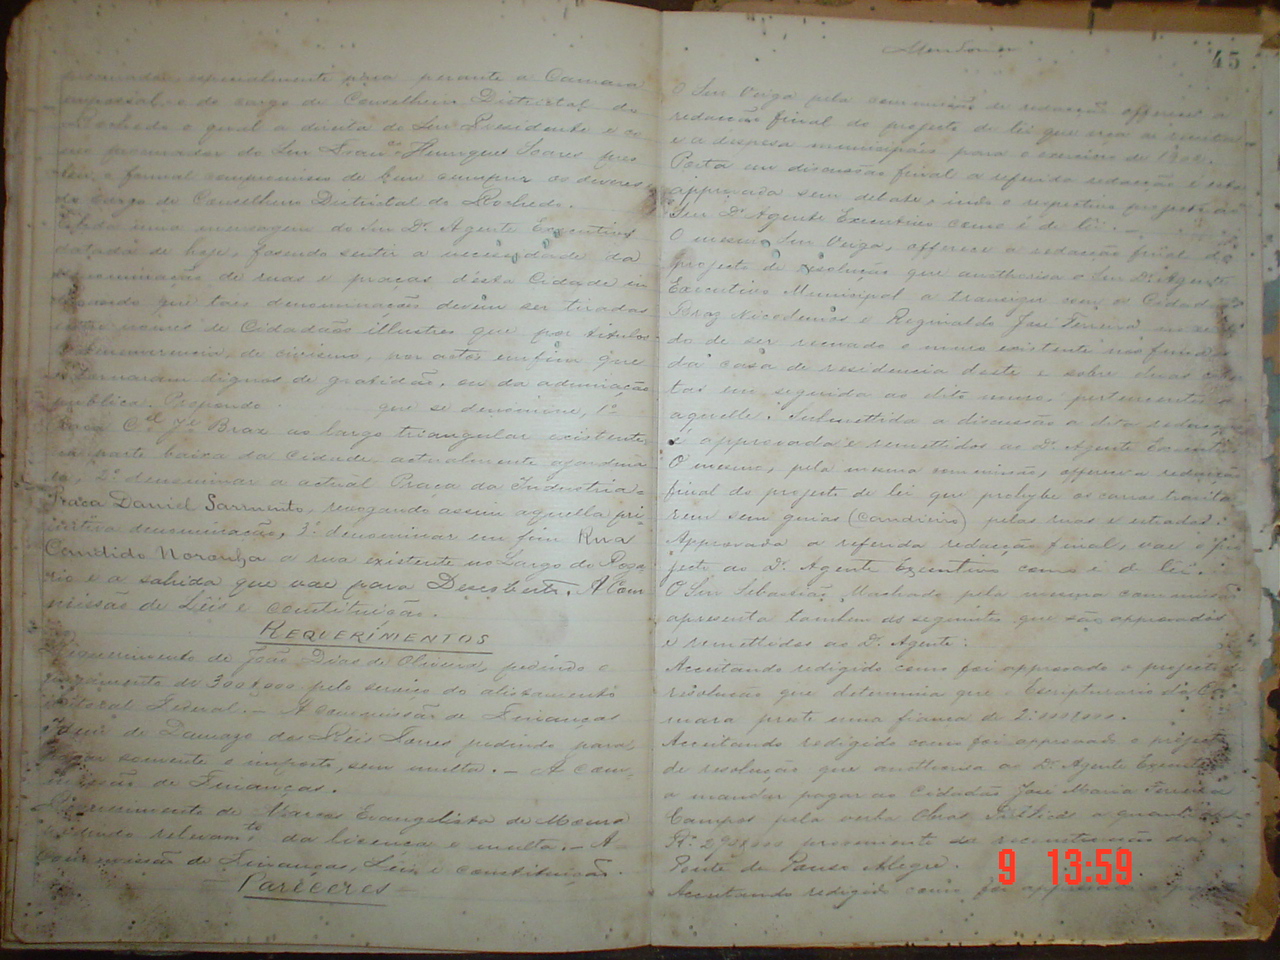 procurador, especialmente para perante a Camara
empossal-o do cargo de Conselheiro Districtal do
Rochedo o qual a direita do Snr. Presidente e co
mo procurador do Snr Henriques Soares pres
tou o formal compromisso de bem cumprir os deveres
do Cargo de Conselheiro Districtal do Rochedo.
Lida uma mensagem do Snr Dr. Agente Executivo
datada de hoje, fasendo sentir a necessidade da
denominação de ruas e praças desta Cidade in
dicando que taes denominações devem ser tiradas
entre nomes de Cidadãos illustres que por titulos
de benemerencia, de civismo, por actos emfim que
os tornaram dignos de gratidão, ou da admiração
publica. Propondo que se denomine, 1º
Praça Cel. Je Braz ao largo triangular existente
na parte baixa da Cidade, actualmente ajardina
do, 2º denominar a actual Praça da Industria =
Praça Daniel Sarmento, revogando assim aquella pri-
mitiva denominação, 3º denominar em fim Rua
Candido Noronha a rua existente no Largo do Rosa
rio e a sahida que vae para Descoberto. A Com
missão de Leis e constituição.
REQUERIMENTOS
Requerimento de João Dias de Oliveira, pedindo o
pagamento de 300$000 pelo serviço do alistamento
eleitoral Federal. — A Commissão de Finanças
Idem de Damazo dos Reis Torres pedindo para
pagar somente o imposto, sem multa. — A Com-
missão de Finanças.
Requerimento de Marcos Evangelista de Moura
pedindo relevamto da licença e multa. — A
commissão de Finanças, Leis e constituição.
Pareceres
45
O Snr Veiga pela commissão de redacção offerece a
redacção final do projecto de lei que orça a receita
e a despesa municipaes para o exercicio de 1902.
Posta em discussão final a referida redacção é esta
approvada sem debate, indo o respectivo projecto ao
Snr Dr Agente Executivo como é de lei. —
O mesmo Snr Veiga, offerece a redacção final do
projecto de resolução que authorisa o Snr Dr Agente
Executivo Municipal a transigir com os Cidadãos
Braz Nicodemos e Reginaldo José Ferreira no senti
do de ser recuado o muro existente nos fundos
da casa de residencia deste e sobre duas
tas em seguida ao dito muro, pertencentes a
aquelle. Submettida a discussão a dita redacção
é approvada e remettidos ao Dr Agente Executivo
O mesmo, pela mesma commissão, offerece a redacção
final do projecto de lei que prohybe os carros transita
rem sem guias (candieiro) pelas ruas e estradas.
Approvada a referida redacção final, vae o pro
jecto ao Dr Agente Executivo como é de lei.
O Snr Sebastião Machado pela mesma commissão
apresenta tambem as seguintes que são approvadas
e remettidas ao Dr. Agente:
Acceitando redigido como foi approvado o projecto de
resolução que determina que o Escripturario da Ca
mara preste uma fiança de 2:000$000.
Acceitando redigido como foi approvado o projecto
de resolução que authorisa ao Dr. Agente Executivo
a mandar pagar ao Cidadão José Maria Ferreira
Campos pela verba Obras Publicas a quantia de
proveniente da reconstrucção da
Ponte de Pouso Alegre.
Acceitando redigido como foi approvado o projecto
9 13:59